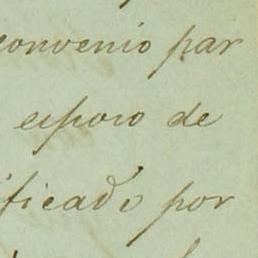 convenio par
esposo de
ificado por